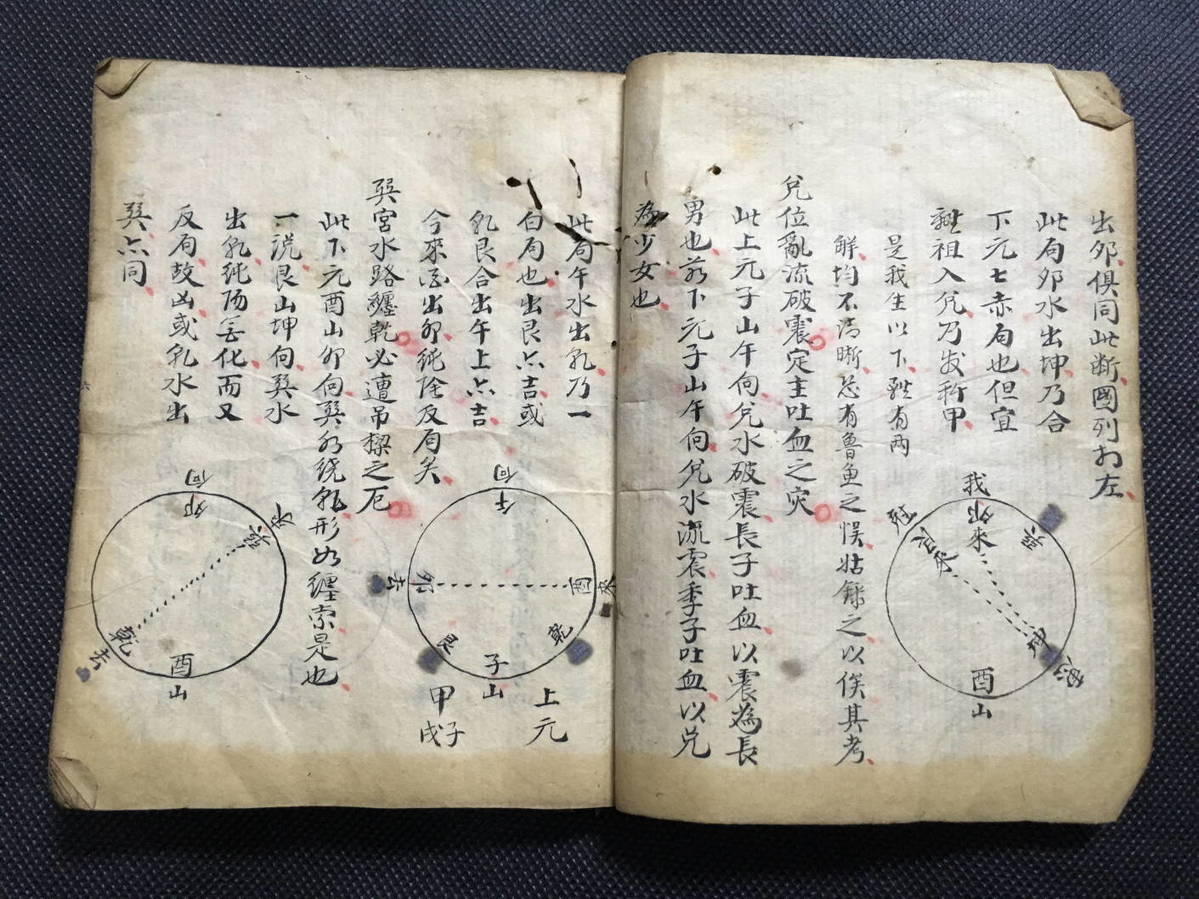 出夘俱同此断國列於左
此局夘水出坤乃合
下元七赤局也但宜
祖入兌乃发科甲
是我生以下 有两
觧均不清晰总有鲁魚之悮姑錄之以俟其考
兌位亂流破震定主吐血之灾
此上元子山午向兌水破震長子吐血以震為長
男也若下元子山午向兌水流震季子吐血以兌
為少女也
我
夘
來
巽
坤
酉
山
此局午水出乹乃一
白局也出艮亦吉或
乹艮合出午上亦吉
今來酉出夘純陰反局矣
巽宮水路纏乾必遭吊樑之厄
此下元酉山夘向巽水繞乹形如纏索是也
一説艮山坤向巽水
出乹純陽無化而又
反局故凶或乹水出
巽亦同
向
午
去
夘
酉
來
艮
乾
子
山
上元
甲子
戌
向
夘
巽
乾
去
酉
山